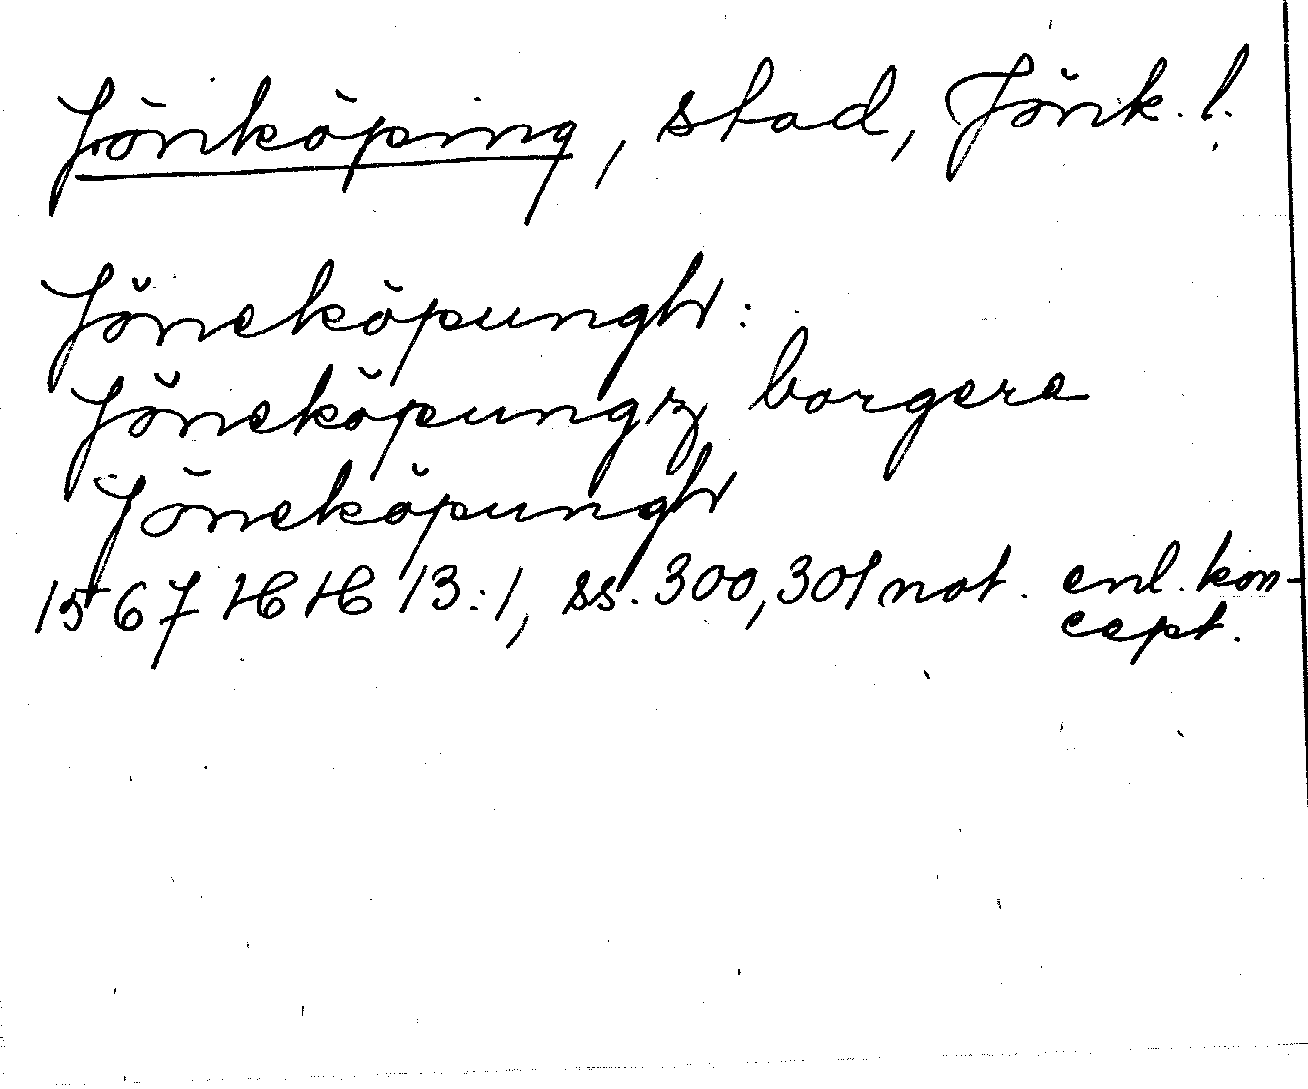 Jönköping, stad, Jönk. l.
Jöneköpungh:
Jöneköpungz borgere
Jöneköpungh
1567 HH 13:1, ss. 300, 301 not. enl. kon-
cept.